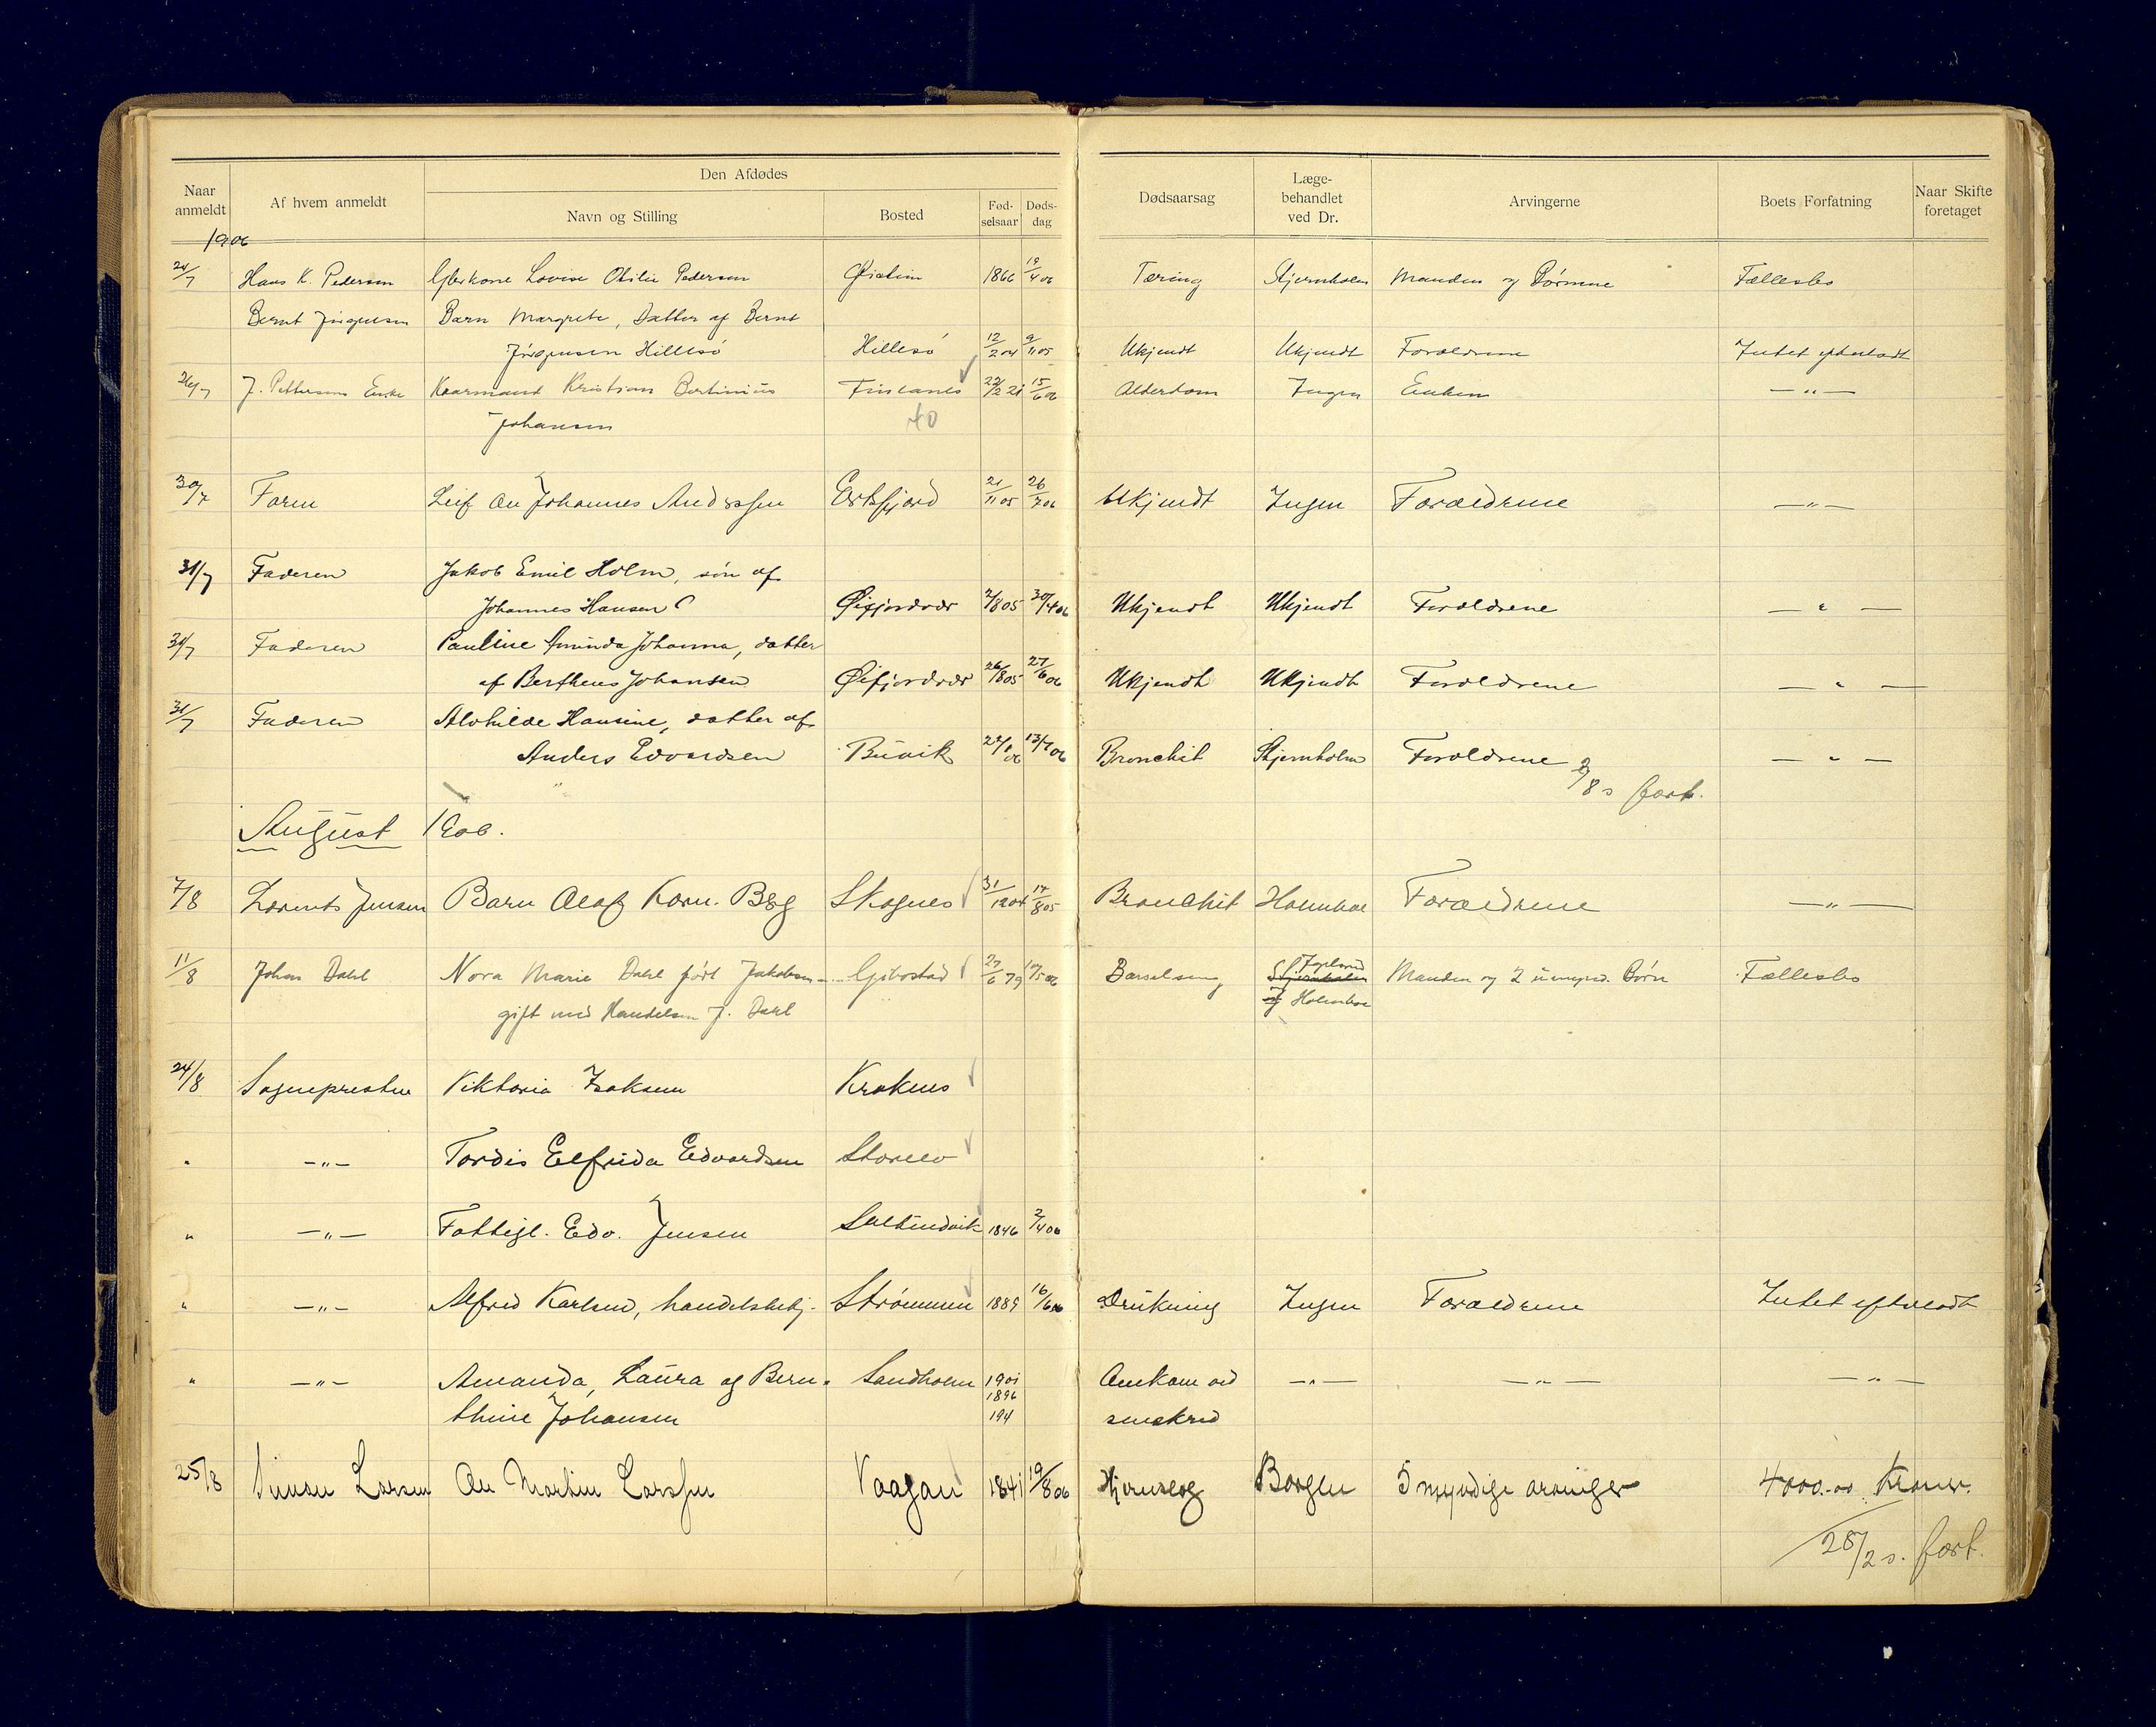 Naar anmeldt
Af hvem anmeldt
Den Afdødes
Navn og Stilling
Bosted
Fød-selsaar
Døds-dag
Dødsaarsag
Læge-behandlet ved Dr.
Arvingerne
Boets Forfatning
Naar Skifte foretaget
1906
24/7 Hans K. Pedersen Lovise Otilie Pedersen 1866 19/4 06 Tæring Stjernholm Manden og Børnene Fællesbo
Bernt Jørgensen Barn Margrete, Datter af Bernt
Jørgensen Hillesö Hillesö 12/2 04 9/11 05 Ukjendt Ukjendt Forældrene Intet efterladt
26/7 J. Pettersens Enke Kaarmand Kristian Bertinius Finlands 22/2 21 15/6 06 Alderdom Ingen Enken —"—
Johansen
30/7 Faren Leif An Johannes Anderssen Ersfjord 21/11 05 26/7 06 Ukjendt Ingen Forældrene —"—
31/7 Faderen Jakob Emil Holm, søn af
Johannes Hansen Øifjordvær 2/8 05 30/4 06 Ukjendt Ukjendt Forældrene —"—
31/7 Faderen Pauline Aminda Johanna, datter
af Bertheus Johansen Øifjordvær 26/8 05 27/6 06 Ukjendt Ukjendt Forældrene —"—
31/7 Faderen Alvhilde Hansine, datter af
Anders Edvardsen Buvik 22/1 06 13/7 06 Bronchit Stjernholm Forældrene —"—
2/8 s fort.
August 1906.
7/8 Lorents Jensen Barn Olaf Korn. Berg Skognes 31/12 04 17/8 05 Bronchit Holmboe Forældrene —"—
11/8 Johan Dahl Nora Marie Dahl født Jakobsen Gibostad 27/6 79 10/5 06 Barselseng Stjernholm Manden og 2 umynd. Børn Fællesbo
gift med Handelsm J. Dahl og Holmboe
24/8 Sognepresten Viktoria Isaksen Kraknes
" —"— Tordis Elfrida Edvardsen Storelv
" —"— Fattigl. Edv. Jensen 1846 2/4 06
" —"— Alfred Karlsen, handelsbetj. Strømmen 1889 16/6 06 Drukning Ingen Forældrene Intet efterladt
" —"— Amanda, Laura og Bern- Sandholm 1901 Omkom ved —"— —"— —"—
1896
thine Johansen 194 sneskred
25/8 Simon Larsen An Martin Larssen Vaagan 1841 19/8 06 Hjerneslag Borgen 5 myndige arvinger 4000.00 Kroner.
28/2 s. fort.